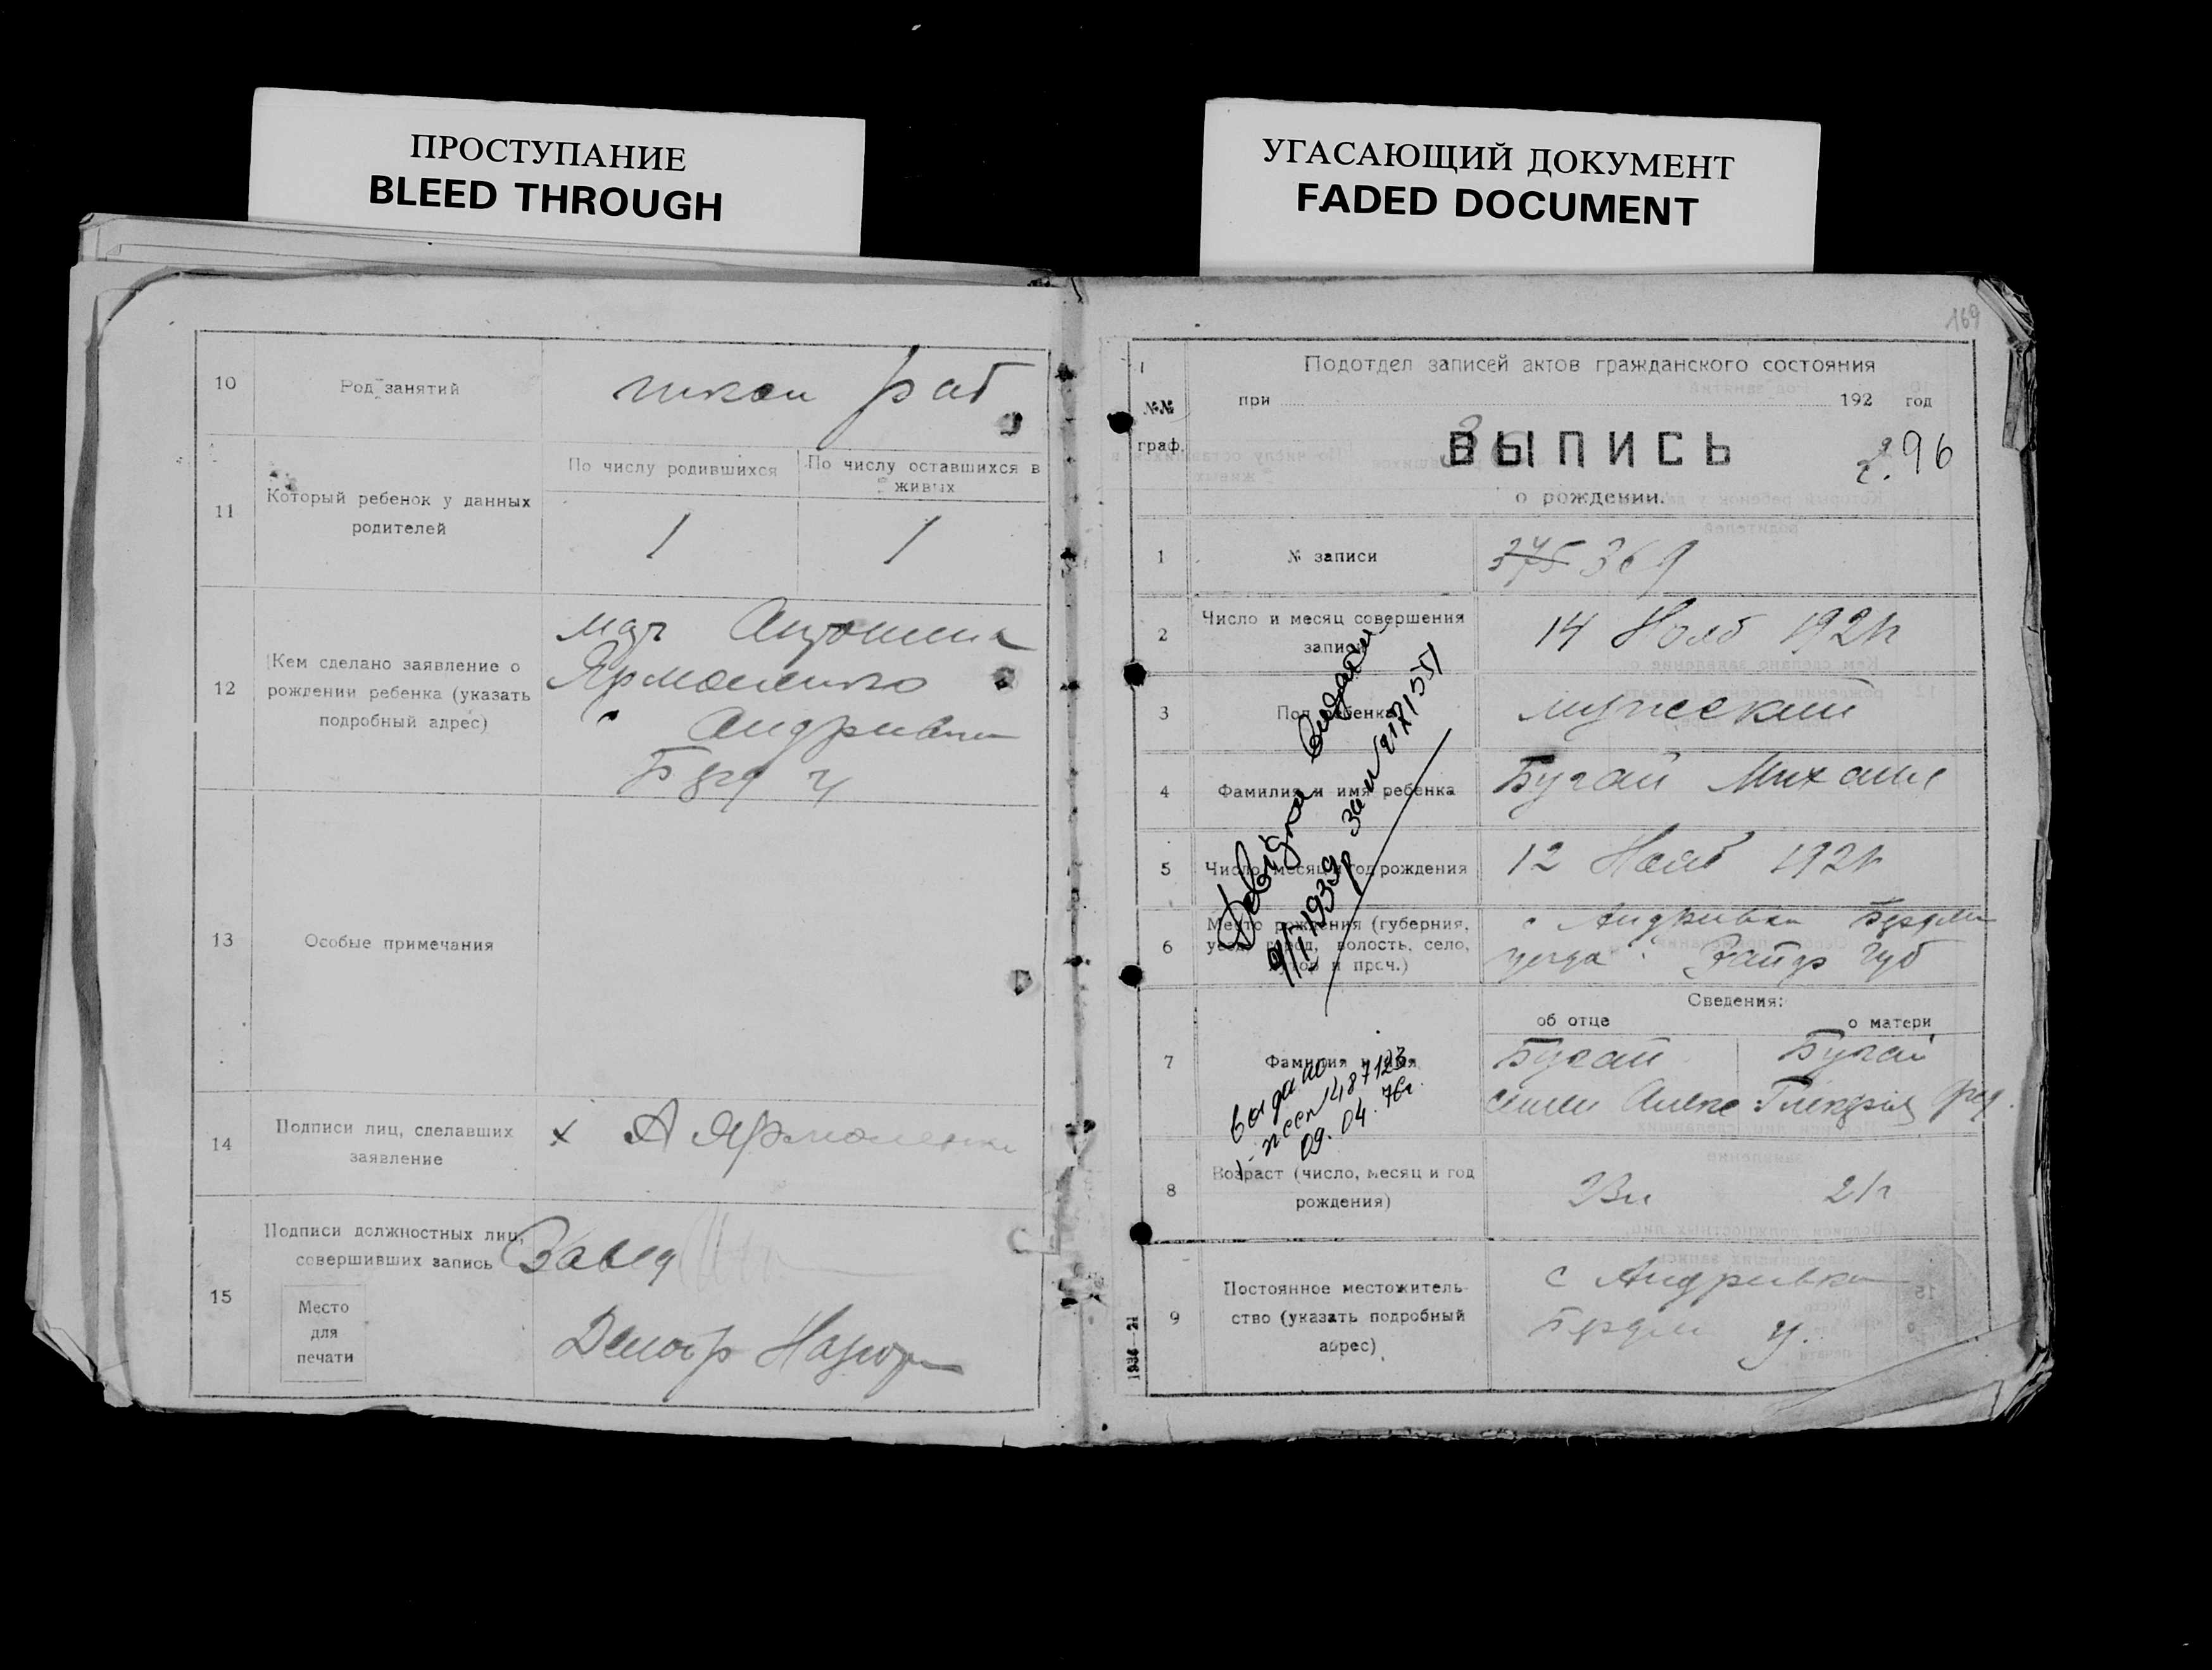 ПРОСТУПАНИЕ
BLEED THROUGH
УГАСАЮЩИЙ ДОКУМЕНТ
FADED DOCUMENT
10
Род занятий
раб
11
Который ребенок у данных
родителей
По числу родившихся
По числу оставшихся в
живых
1
1
12
Кем сделано заявление о
рождении ребенка (указать
подробный адрес)
Ярмоленко
с Андривки
13
Особые примечания
14
Подписи лиц, сделавших
заявление
х А Ярмоленко
15
Подписи должностных лиц,
совершивших запись
Место
для
печати
Завед
169
1
№№
граф.
Подотдел записей актов гражданского состояния
при 192 год
ВЫПИСЬ
296
о рождении.
1
№ записи
375 369
2
Число и месяц совершения
записи
14 Нояб 1921г
3
Пол ребенка
мужеский
4
Фамилия и имя ребенка
Бугай Михаил
5
Число, месяц и год рождения
12 Нояб 1921г
6
Место рождения (губерния,
уезд, город, волость, село,
хутор и проч.)
с Андривка Бердян
уезда губ
Сведения:
об отце
о матери
7
Фамилия и имя
Бугай
Бугай
8
Возраст (число, месяц и год
рождения)
21г
9
Постоянное местожитель-
ство (указать подробный
адрес)
с Андривка
Бердян у.
Довідка видана
1939р за № 2171551
выдано
09.04.76г.
1936—21